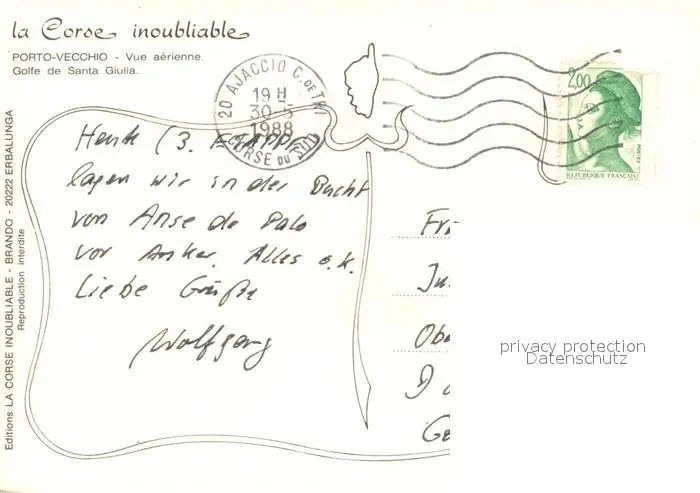 la Corse inoubliable
PORTO-VECCHIO - Vue aérienne.
Golfe de Santa Giulia.
20 AJACCIO C. DE TRI
19 H
30-5
1988
CORSE DU SUD
2,00
POSTES
REPUBLIQUE FRANÇAISE
Heute (3. ETAPPE)
lagen wir in der Bucht
von Anse de Palo
vor Anker. Alles o.k.
Liebe Grüße
Wolfgang
Fr
Ju
Obe
D
Ge
privacy protection
Datenschutz
Editions LA CORSE INOUBLIABLE - BRANDO - 20222 ERBALUNGA
Reproduction interdite